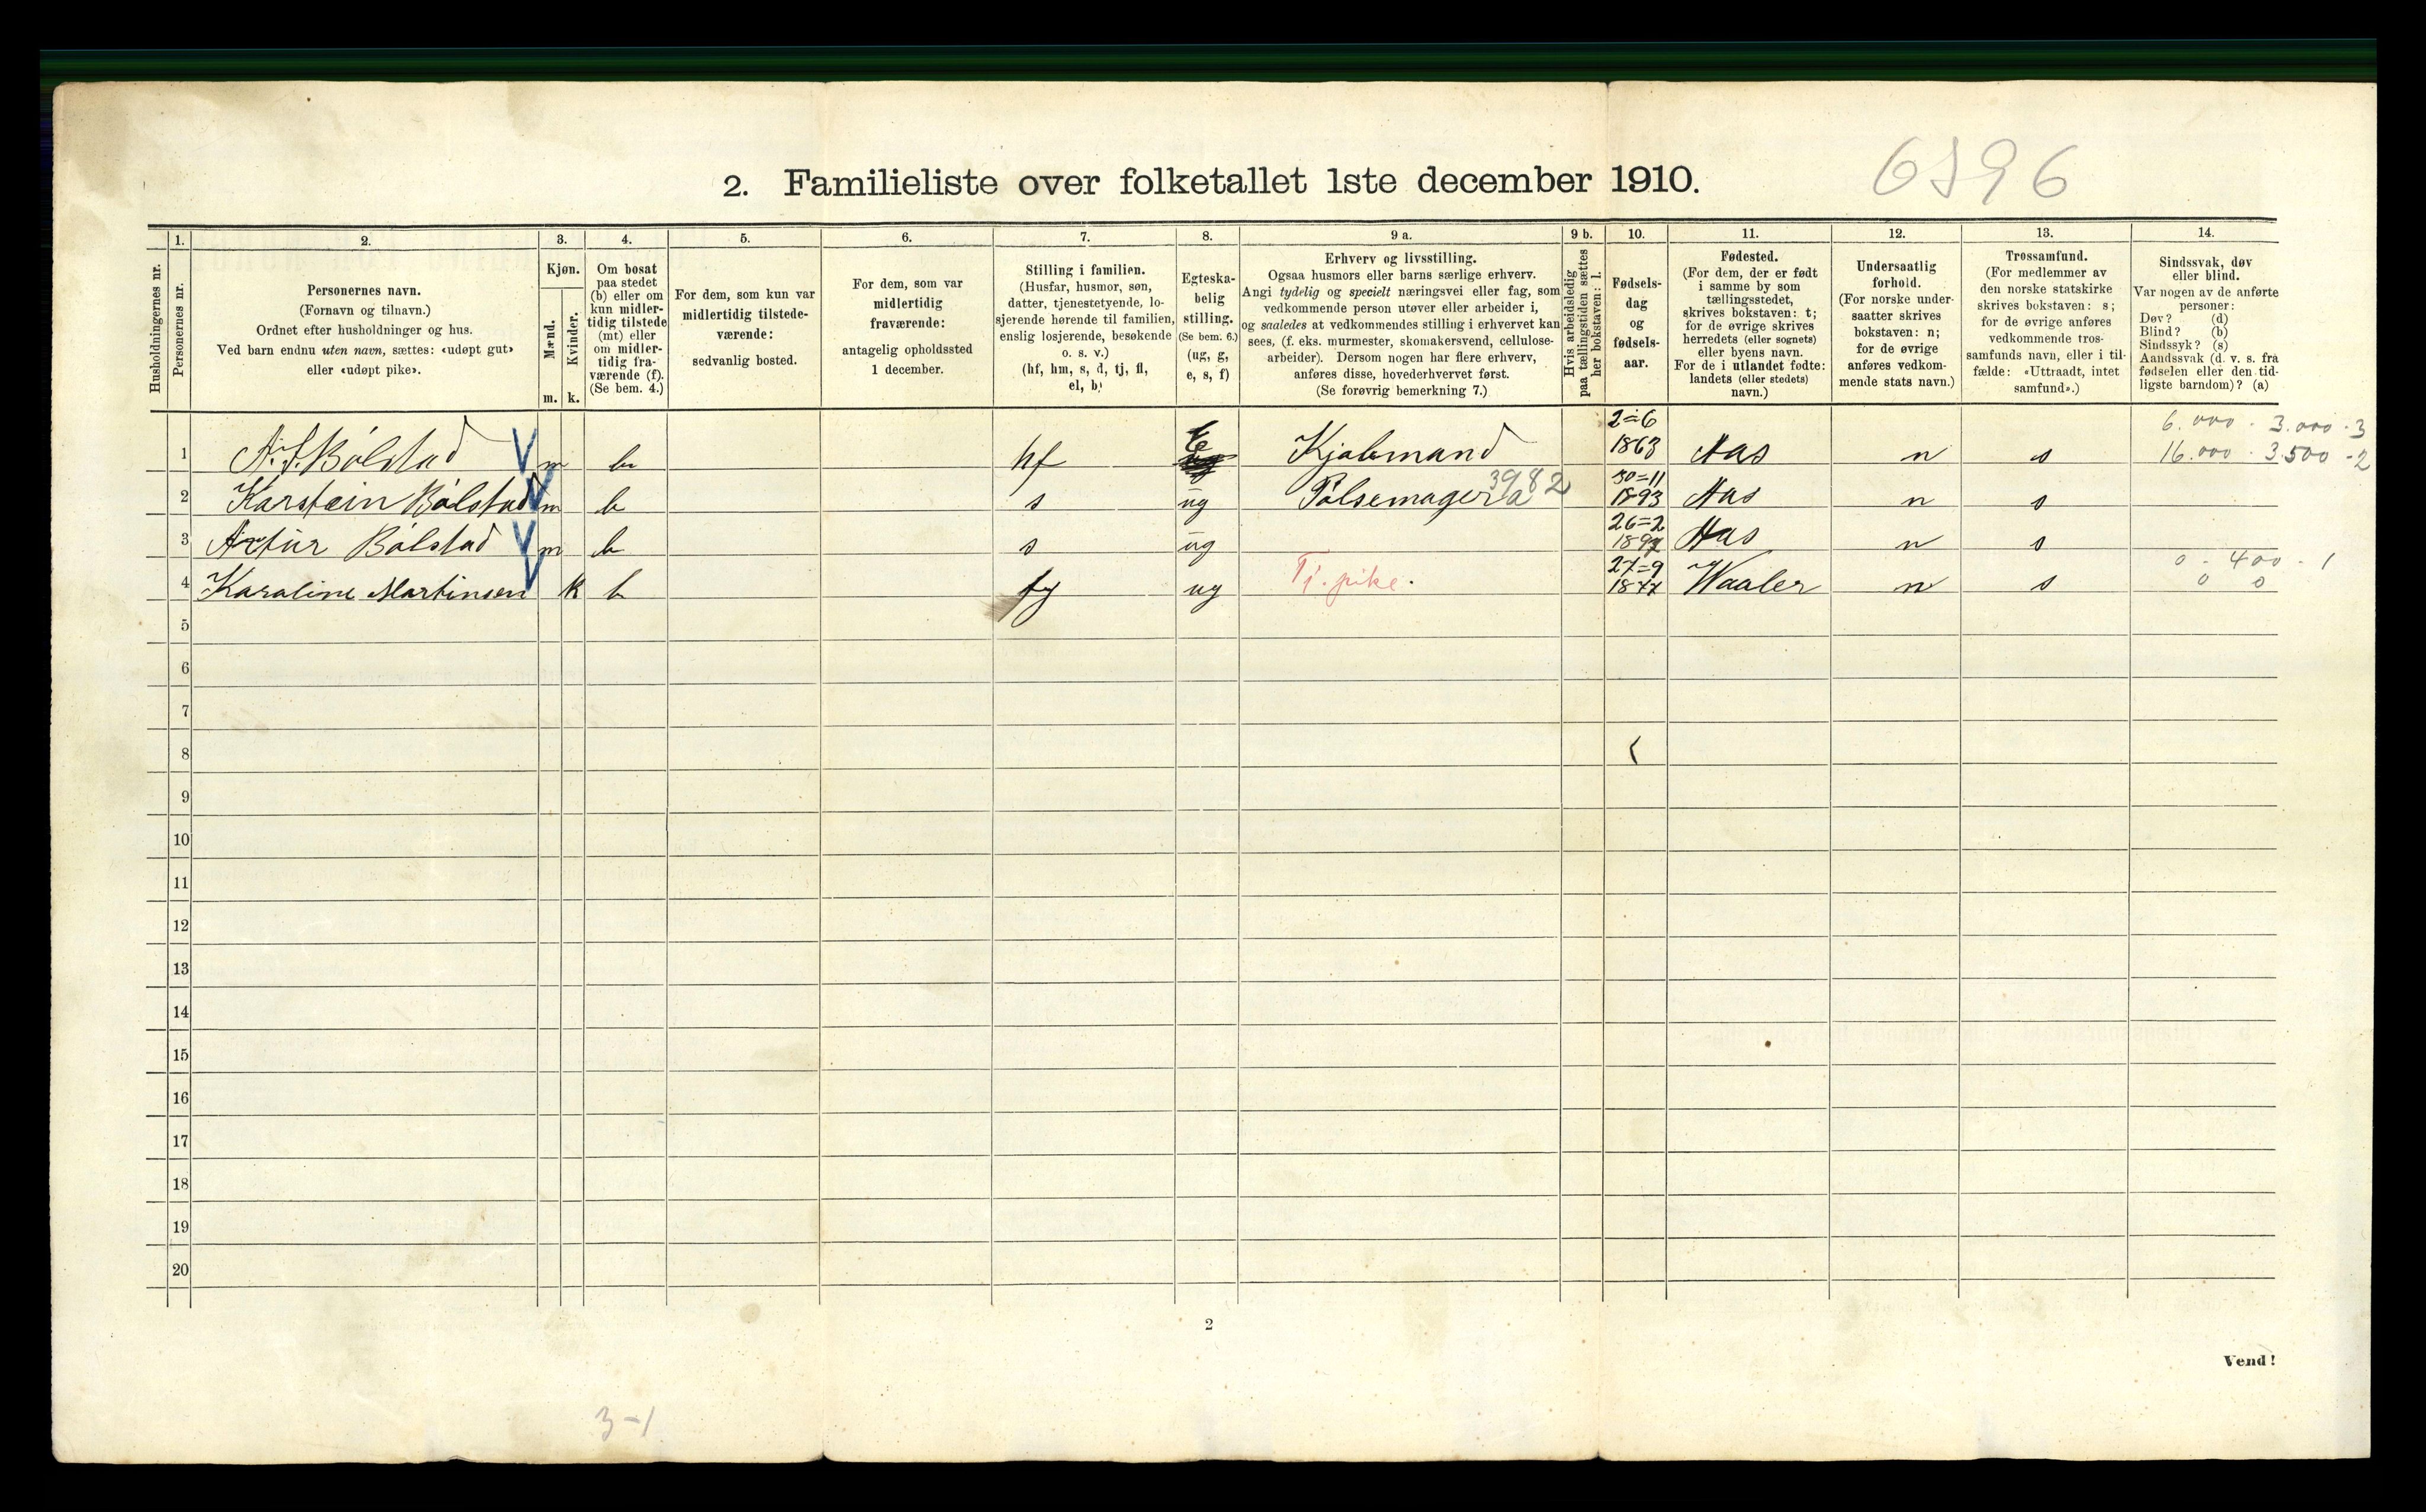 6396
2. Familieliste over folketallet 1ste december 1910.
Husholdningernes nr.
1. Personernes nr.
2.
Personernes navn.
(Fornavn og tilnavn.)
Ordnet efter husholdninger og hus.
Ved barn endnu uten navn, sættes: «udøpt gut»
eller «udøpt pike».
3.
Kjøn.
Mænd. Kvinder.
m. k.
4.
Om bosat
paa stedet
(b) eller om
kun midler-
tidig tilstede
(mt) eller
om midler-
tidig fra-
værende (f).
(Se bem. 4.)
5.
For dem, som kun var
midlertidig tilstede-
værende:
sedvanlig bosted.
6.
For dem, som var
midlertidig
fraværende:
antagelig opholdssted
1 december.
7.
Stilling i familien.
(Husfar, husmor, søn,
datter, tjenestetyende, lo-
sjerende hørende til familien,
enslig losjerende, besøkende
o. s. v.)
(hf, hm, s, d, tj, fl,
el, b)
8.
Egteska-
belig
stilling.
(Se bem. 6.)
(ug, g,
e, s, f)
9 a.
Erhverv og livsstilling.
Ogsaa husmors eller barns særlige erhverv.
Angi tydelig og specielt næringsvei eller fag, som
vedkommende person utøver eller arbeider i,
og saaledes at vedkommendes stilling i erhvervet kan
sees, (f. eks. murmester, skomakersvend, cellulose-
arbeider). Dersom nogen har flere erhverv,
anføres disse, hovederhvervet først.
(Se forøvrig bemerkning 7.)
9 b.
Hvis arbeidsledig
paa tællingstiden sættes
her bokstaven: l.
10.
Fødsels-
dag
og
fødsels-
aar.
11.
Fødested.
(For dem, der er født
i samme by som
tællingsstedet,
skrives bokstaven: t;
for de øvrige skrives
herredets (eller sognets)
eller byens navn.
For de i utlandet fødte:
landets (eller stedets)
navn.)
12.
Undersaatlig
forhold.
(For norske under-
saatter skrives
bokstaven: n;
for de øvrige
anføres vedkom-
mende stats navn.)
13.
Trossamfund.
(For medlemmer av
den norske statskirke
skrives bokstaven: s;
for de øvrige anføres
vedkommende tros-
samfunds navn, eller i til-
fælde: «Uttraadt, intet
samfund».)
14.
Sindssvak, døv
eller blind.
Var nogen av de anførte
personer:
Døv? (d)
Blind? (b)
Sindssyk? (s)
Aandssvak (d. v. s. fra
fødselen eller den tid-
ligste barndom)? (a)
6.000 . 3.000 . 3
1 A. J. Bølstad m b hf E Kjøbmand 2=6 1863 Aas n s 16.000 . 3.500 - 2
2 Karstein Bølstad m b s ug Pølsemager a 3982 30=11 1893 Aas n s
3 Artur Bølstad m b s ug 26=2 1897 Aas n s
0 - 400 - 1
4 Karaline Martinsen k b ty ug Tj. pike. 27=9 1877 Waaler n s 0 0
5
6
7
8
9
10
11
12
13
14
15
16
17
18
19
20
2
Vend!
3-1